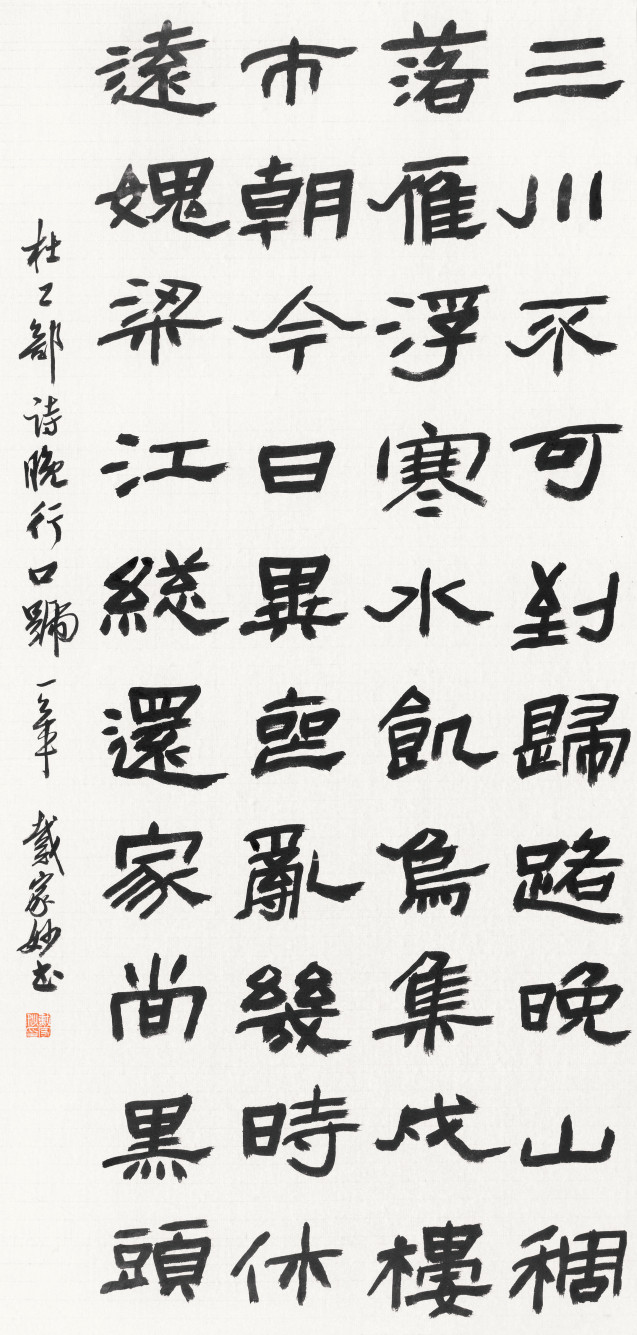 三川不可到歸路晚山稠
落雁浮寒水飢烏集戍樓
市朝今日異喪亂幾時休
遠愧梁江總還家尚黑頭
杜工部詩晚行口號一章 戴家妙書